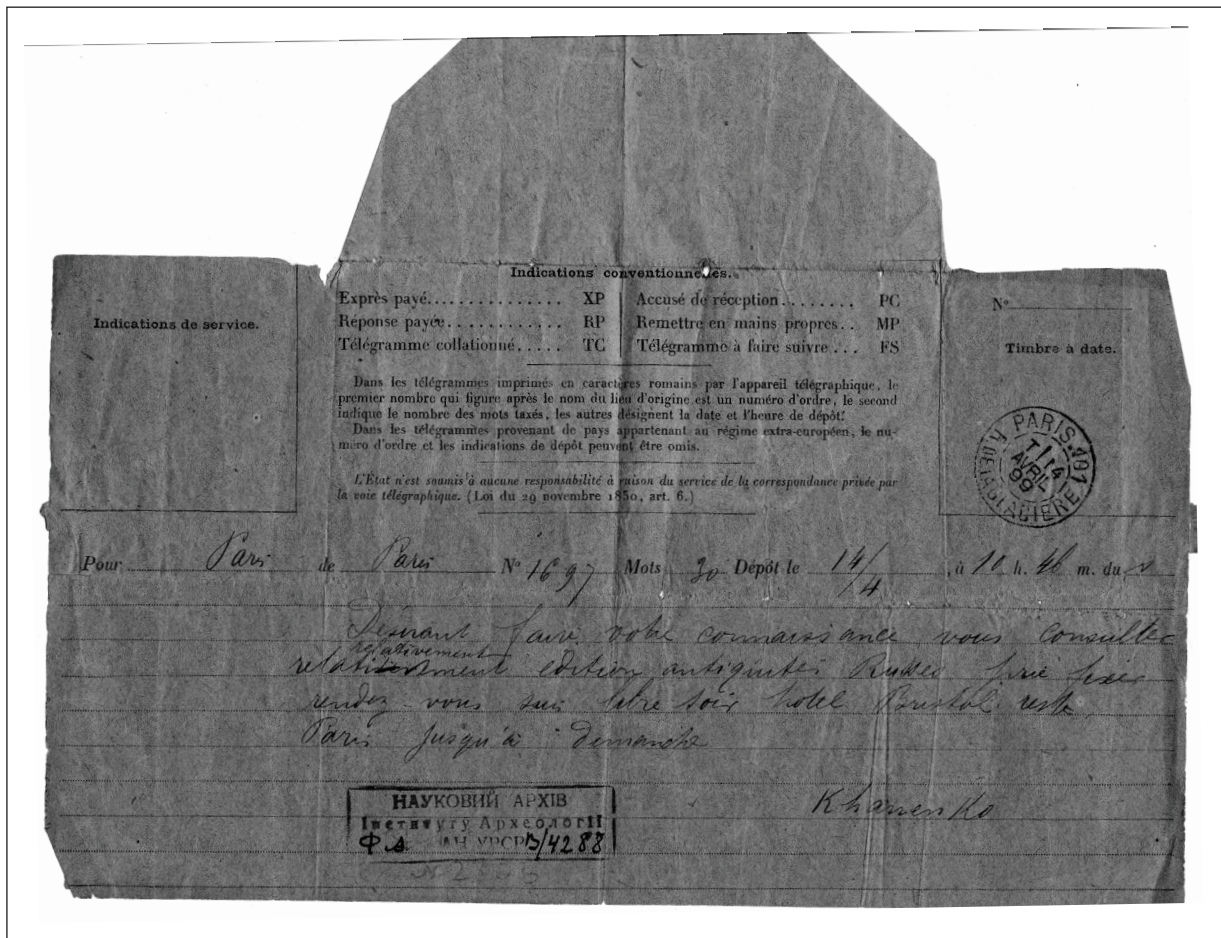 Indications conventionnelles.
Exprès payé............... XP
Réponse payée............ RP
Télégramme collationné..... TC
Accusé de réception........ PC
Remettre en mains propres.. MP
Télégramme à faire suivre... FS
Dans les télégrammes imprimés en caractères romains par l'appareil télégraphique, le
premier nombre qui figure après le nom du lieu d'origine est un numéro d'ordre, le second
indique le nombre des mots taxés, les autres désignent la date et l'heure de dépôt.
Dans les télégrammes provenant de pays appartenant au régime extra-européen, le nu-
méro d'ordre et les indications de dépôt peuvent être omis.
L'État n'est soumis à aucune responsabilité à raison du service de la correspondance privée par
la voie télégraphique. (Loi du 29 novembre 1850, art. 6.)
Indications de service.
N°
Timbre à date.
PARIS 101
14
AVRIL
99
R. DE LA GLACIERE
Pour Paris de Paris N° 1697 Mots 30 Dépôt le 14/4, à 10 h. 46 m. du
Désirant faire votre connaissance vous consulter
relativement
edition antiquités Russes prie fixer
rendez vous suis libre soir hotel Bristol reste
Paris jusqu'à dimanche
Khanenko
НАУКОВИЙ АРХІВ
Інституту Археології
АН УРСР В/4288